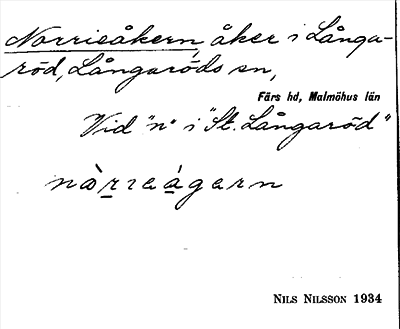 Norrieåkern, åker i Långa-
röd, Långaröds sn,
Färs hd, Malmöhus län
Vid "n" i "St. Långaröd"
nòrɪeágarn
NILS NILSSON 1934